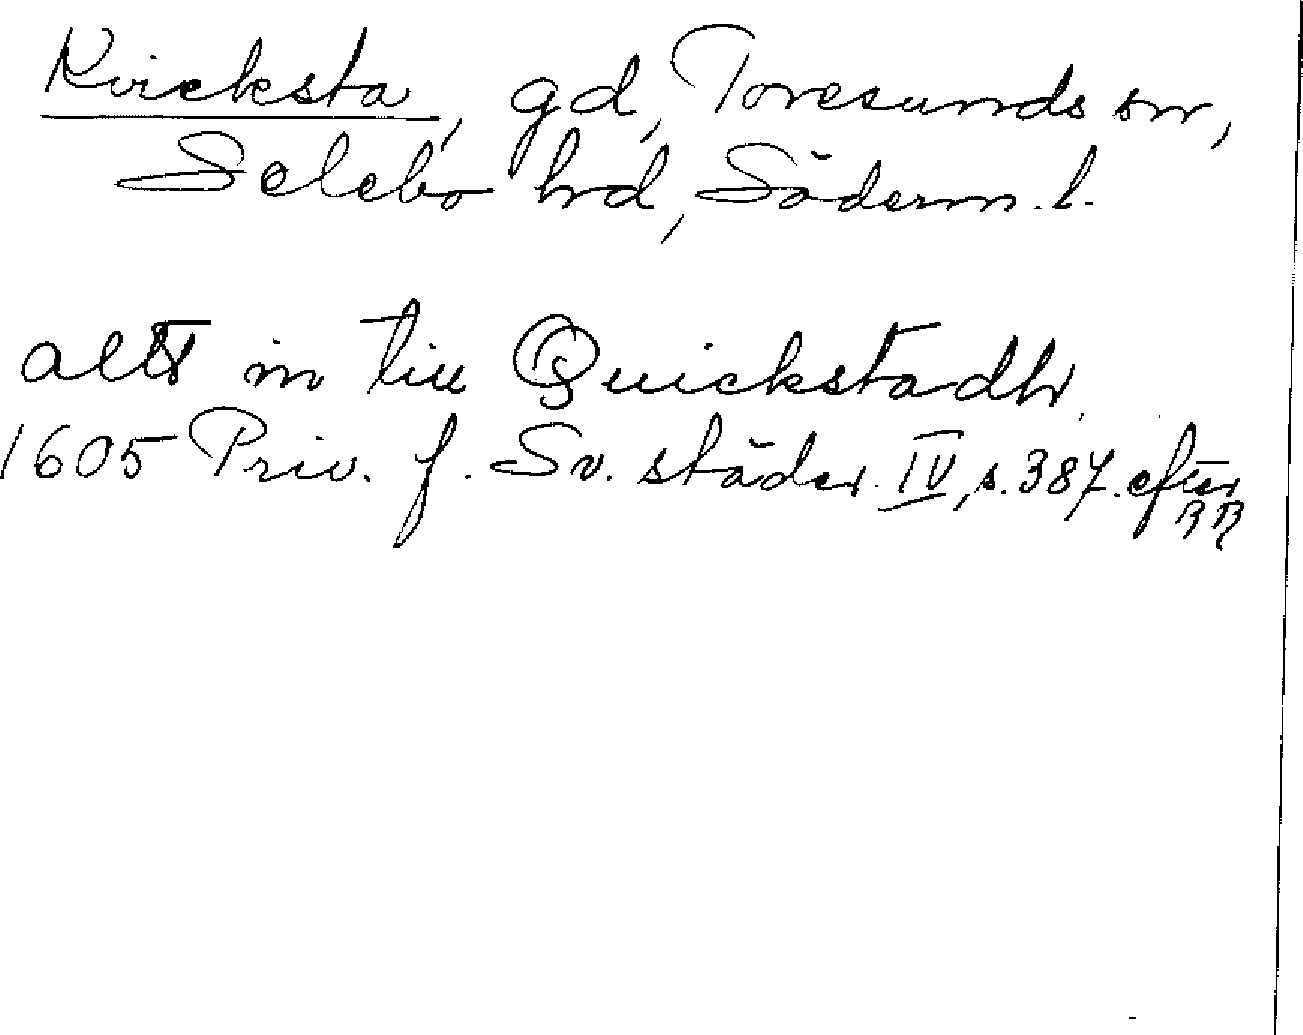 Kvicksta, gd, Toresunds sn,
Selebo hd, Söderm. l.
allt in till Quickstadh
1605 Priv. f. Sv. städer. IV, s. 387. efter
RR